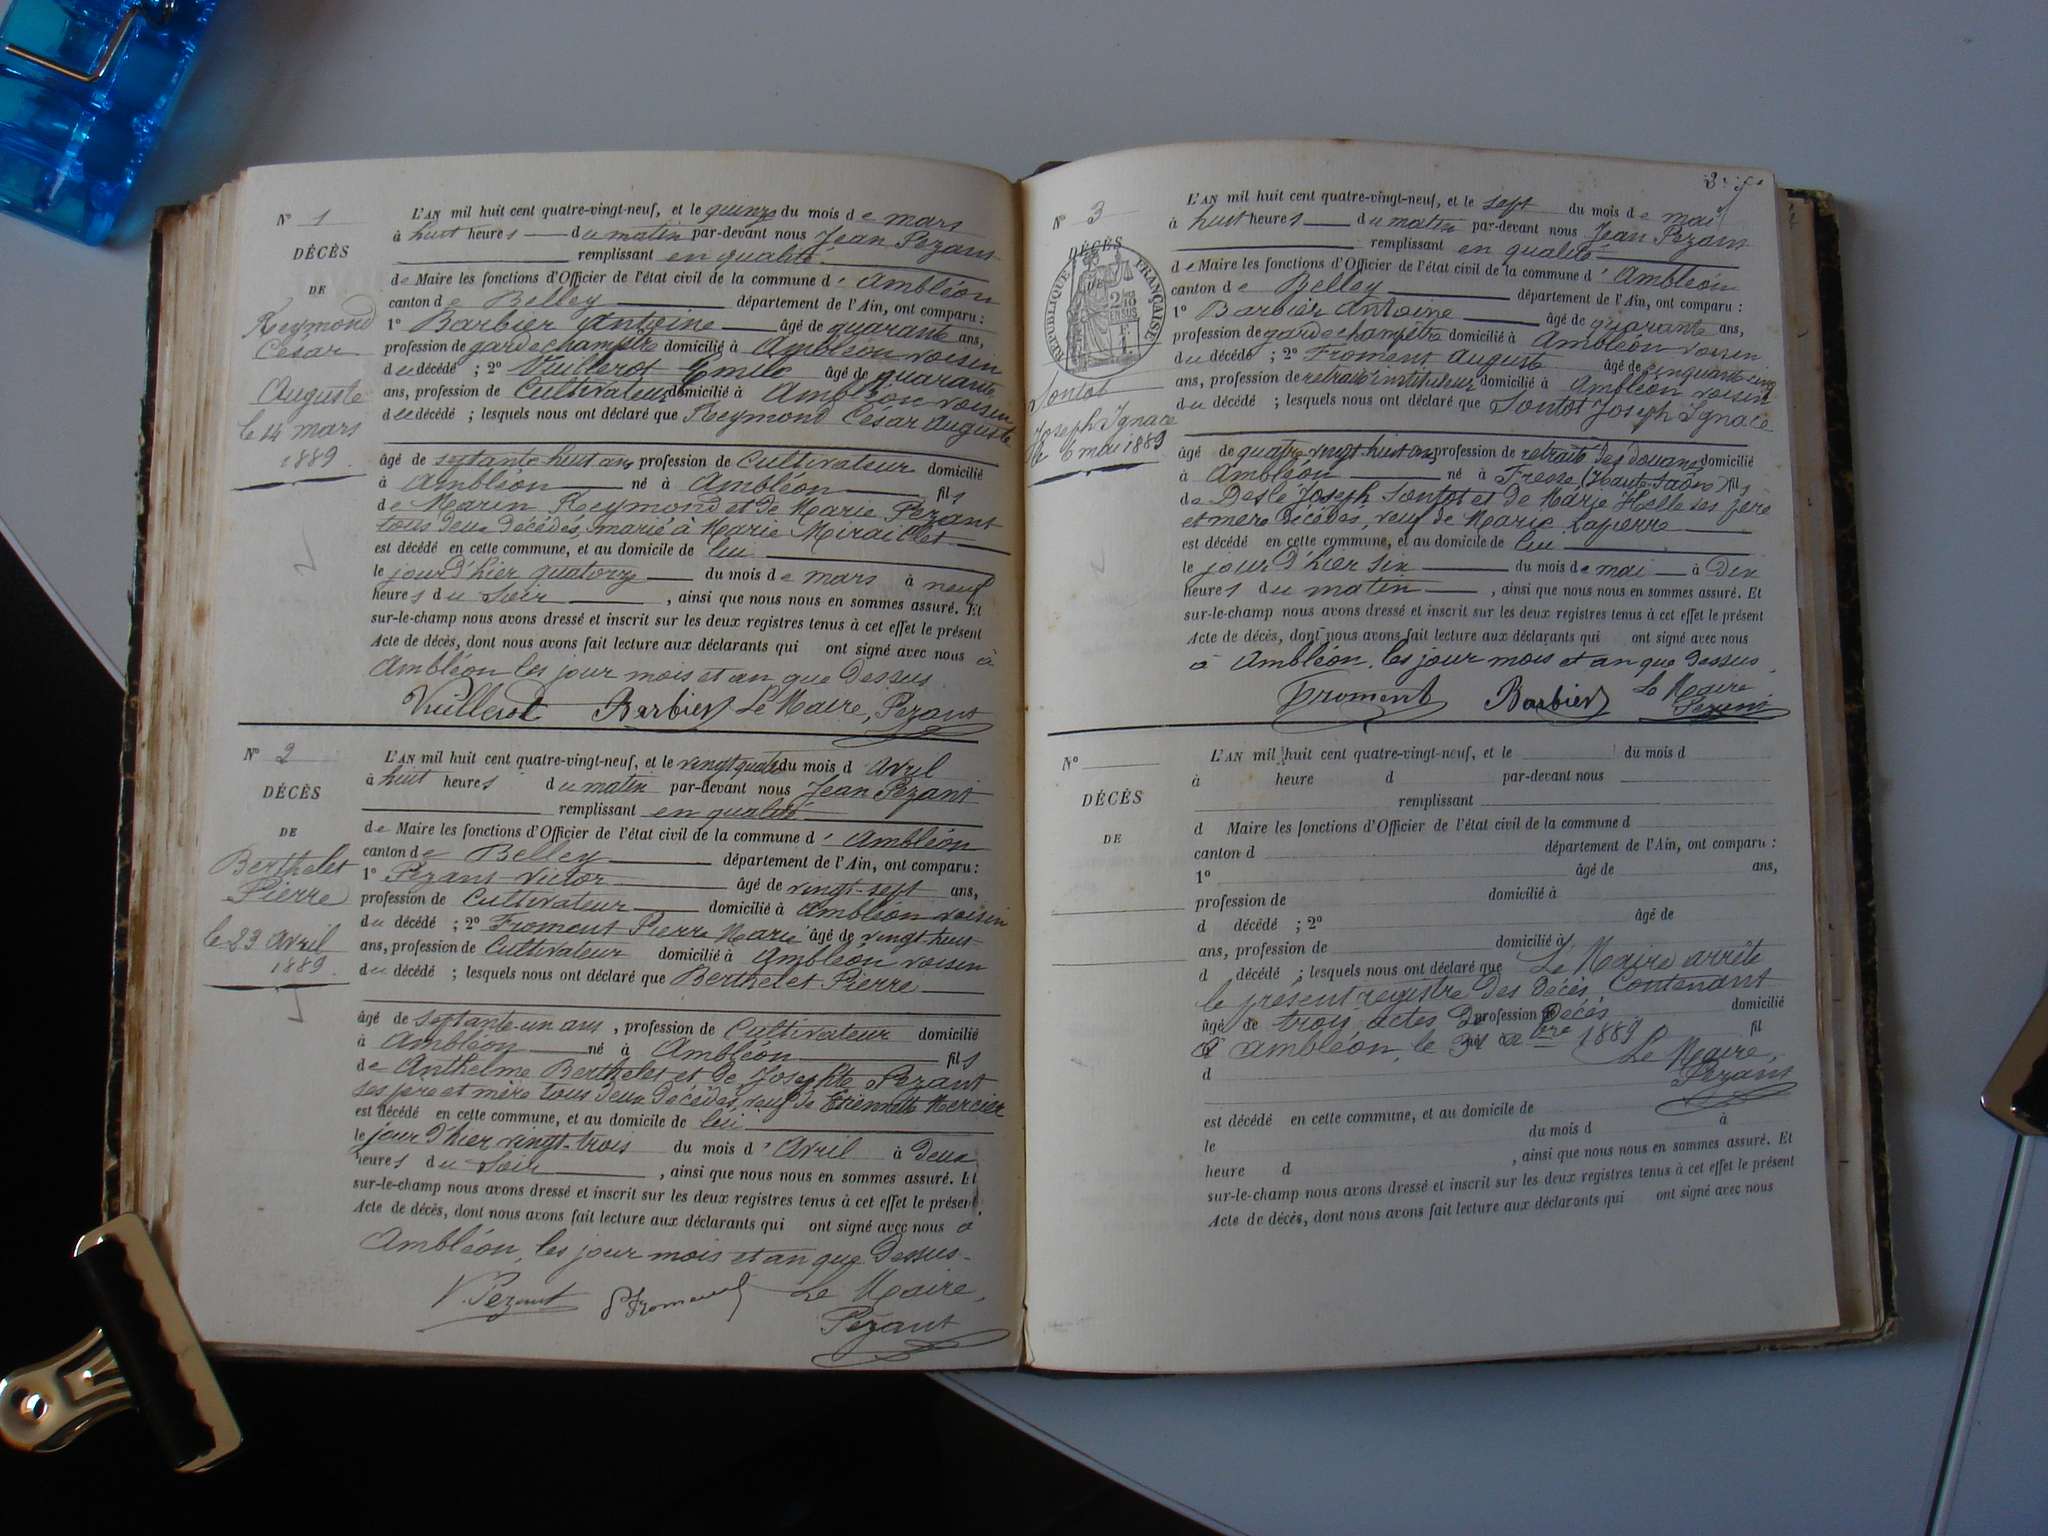 N° 1
DÉCÈS
DE
Reymond
César
Auguste
le 14 mars
1889
L'AN mil huit cent quatre-vingt-neuf, et le quinze du mois de mars
à huit heures du matin par-devant nous Jean Pezant
remplissant en qualité
de Maire les fonctions d'Officier de l'état civil de la commune d' Ambléon
canton de Belley département de l'Ain, ont comparu :
1° Barbier Antoine âgé de quarante ans,
profession de garde champêtre domicilié à Ambléon voisin
du décédé ; 2° Vuillerot Emile âgé de quarante
ans, profession de Cultivateur domicilié à Ambléon voisin
du décédé ; lesquels nous ont déclaré que Reymond César Auguste
âgé de septante huit ans profession de Cultivateur domicilié
à Ambléon né à Ambléon fils
de Marin Reymond et de Marie Pezant
tous deux décédés, marié à Marie Miraillet
est décédé en cette commune, et au domicile de lui
le jour d'hier quatorze du mois de mars à neuf
heures du soir , ainsi que nous nous en sommes assuré. Et
sur-le-champ nous avons dressé et inscrit sur les deux registres tenus à cet effet le présent
Acte de décès, dont nous avons fait lecture aux déclarants qui ont signé avec nous à
Ambléon les jour mois et an que dessus
Vuillerot Barbier Le Maire, Pezant
N° 2
DÉCÈS
DE
Berthelet
Pierre
le 23 avril
1889
L'AN mil huit cent quatre-vingt-neuf, et le vingt quatre du mois d' avril
à huit heures du matin par-devant nous Jean Pezant
remplissant en qualité
de Maire les fonctions d'Officier de l'état civil de la commune d' Ambléon
canton de Belley département de l'Ain, ont comparu :
1° Pezant Victor âgé de vingt-sept ans,
profession de Cultivateur domicilié à Ambléon voisin
du décédé ; 2° Froment Pierre Marie âgé de vingt huit
ans, profession de Cultivateur domicilié à Ambléon voisin
du décédé ; lesquels nous ont déclaré que Berthelet Pierre
âgé de septante-un ans , profession de Cultivateur domicilié
à Ambléon né à Ambléon fils
de Anthelme Berthelet et de Josephte Pezant
ses père et mère tous deux décédés, veuf de Etiennette Mercier
est décédé en cette commune, et au domicile de lui
le jour d'hier vingt-trois du mois d' Avril à deux
heures du soir , ainsi que nous nous en sommes assuré. Et
sur-le-champ nous avons dressé et inscrit sur les deux registres tenus à cet effet le présent
Acte de décès, dont nous avons fait lecture aux déclarants qui ont signé avec nous à
Ambléon, les jour mois et an que dessus
V. Pezant P. Froment Le Maire,
Pezant
N° 3
DÉCÈS
DE
RÉPUBLIQUE FRANÇAISE
Sontot
Joseph Ignace
le 6 mai 1889
L'AN mil huit cent quatre-vingt-neuf, et le sept du mois de mai
à huit heures du matin par-devant nous Jean Pezant
remplissant en qualité
de Maire les fonctions d'Officier de l'état civil de la commune d' Ambléon
canton de Belley département de l'Ain, ont comparu :
1° Barbier Antoine âgé de quarante ans,
profession de garde champêtre domicilié à Ambléon voisin
du décédé ; 2° Froment Auguste âgé de cinquante cinq
ans, profession de retraité instituteur domicilié à Ambléon voisin
du décédé ; lesquels nous ont déclaré que Sontot Joseph Ignace
âgé de quatre vingt huit ans profession de retraité des douanes domicilié
à Ambléon né à Fresse (Haute Saône) fils
de Desle Joseph Sontot et de Marie Helle ses père
et mère décédés, veuf de Marie Laperre
est décédé en cette commune, et au domicile de lui
le jour d'hier six du mois de mai à dix
heures du matin , ainsi que nous nous en sommes assuré. Et
sur-le-champ nous avons dressé et inscrit sur les deux registres tenus à cet effet le présent
Acte de décès, dont nous avons fait lecture aux déclarants qui ont signé avec nous
à Ambléon, les jour mois et an que dessus
Froment Barbier Le Maire
Pezant
N°
DÉCÈS
DE
L'AN mil huit cent quatre-vingt-neuf, et le du mois d
à heure d par-devant nous
remplissant
d Maire les fonctions d'Officier de l'état civil de la commune d
canton d département de l'Ain, ont comparu :
1° âgé de ans,
profession de domicilié à
d décédé ; 2° âgé de
ans, profession de domicilié à
d décédé ; lesquels nous ont déclaré que Le Maire arrête
le présent registre des décès, contenant
âgé de trois actes de profession décès domicilié
à Ambléon, le 31 Xbre 1889 fil
d Le Maire,
Pezant
est décédé en cette commune, et au domicile de
le du mois d à
heure d , ainsi que nous nous en sommes assuré. Et
sur-le-champ nous avons dressé et inscrit sur les deux registres tenus à cet effet le présent
Acte de décès, dont nous avons fait lecture aux déclarants qui ont signé avec nous